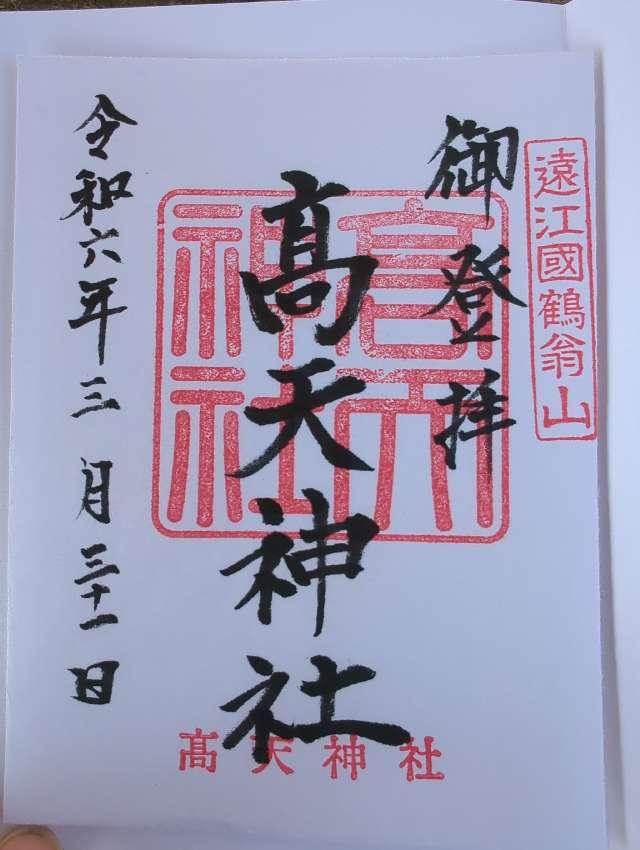 遠江國鶴翁山
御登拝
髙天神社
高天神社
髙天神社
令和六年三月三十一日